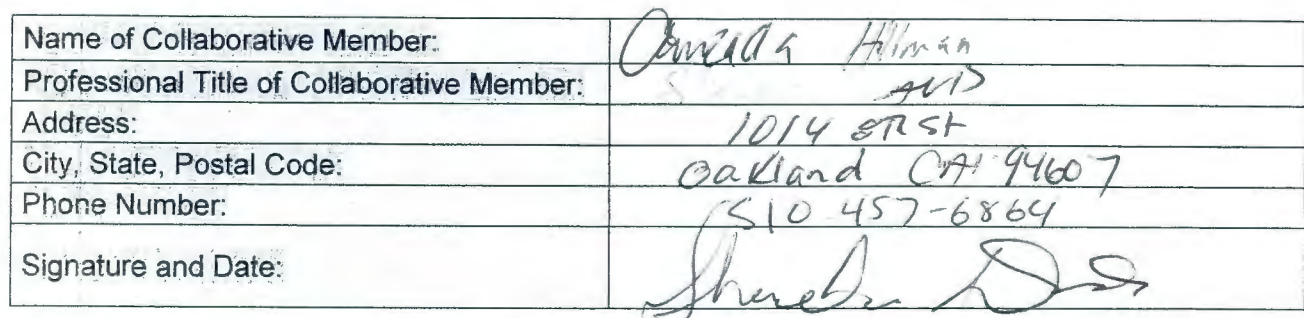 Name of Collaborative Member: Hillman
Professional Title of Collaborative Member:
Address: 1014 St
City, State, Postal Code: Oakland CA 94607
Phone Number: 510 457-6864
Signature and Date: